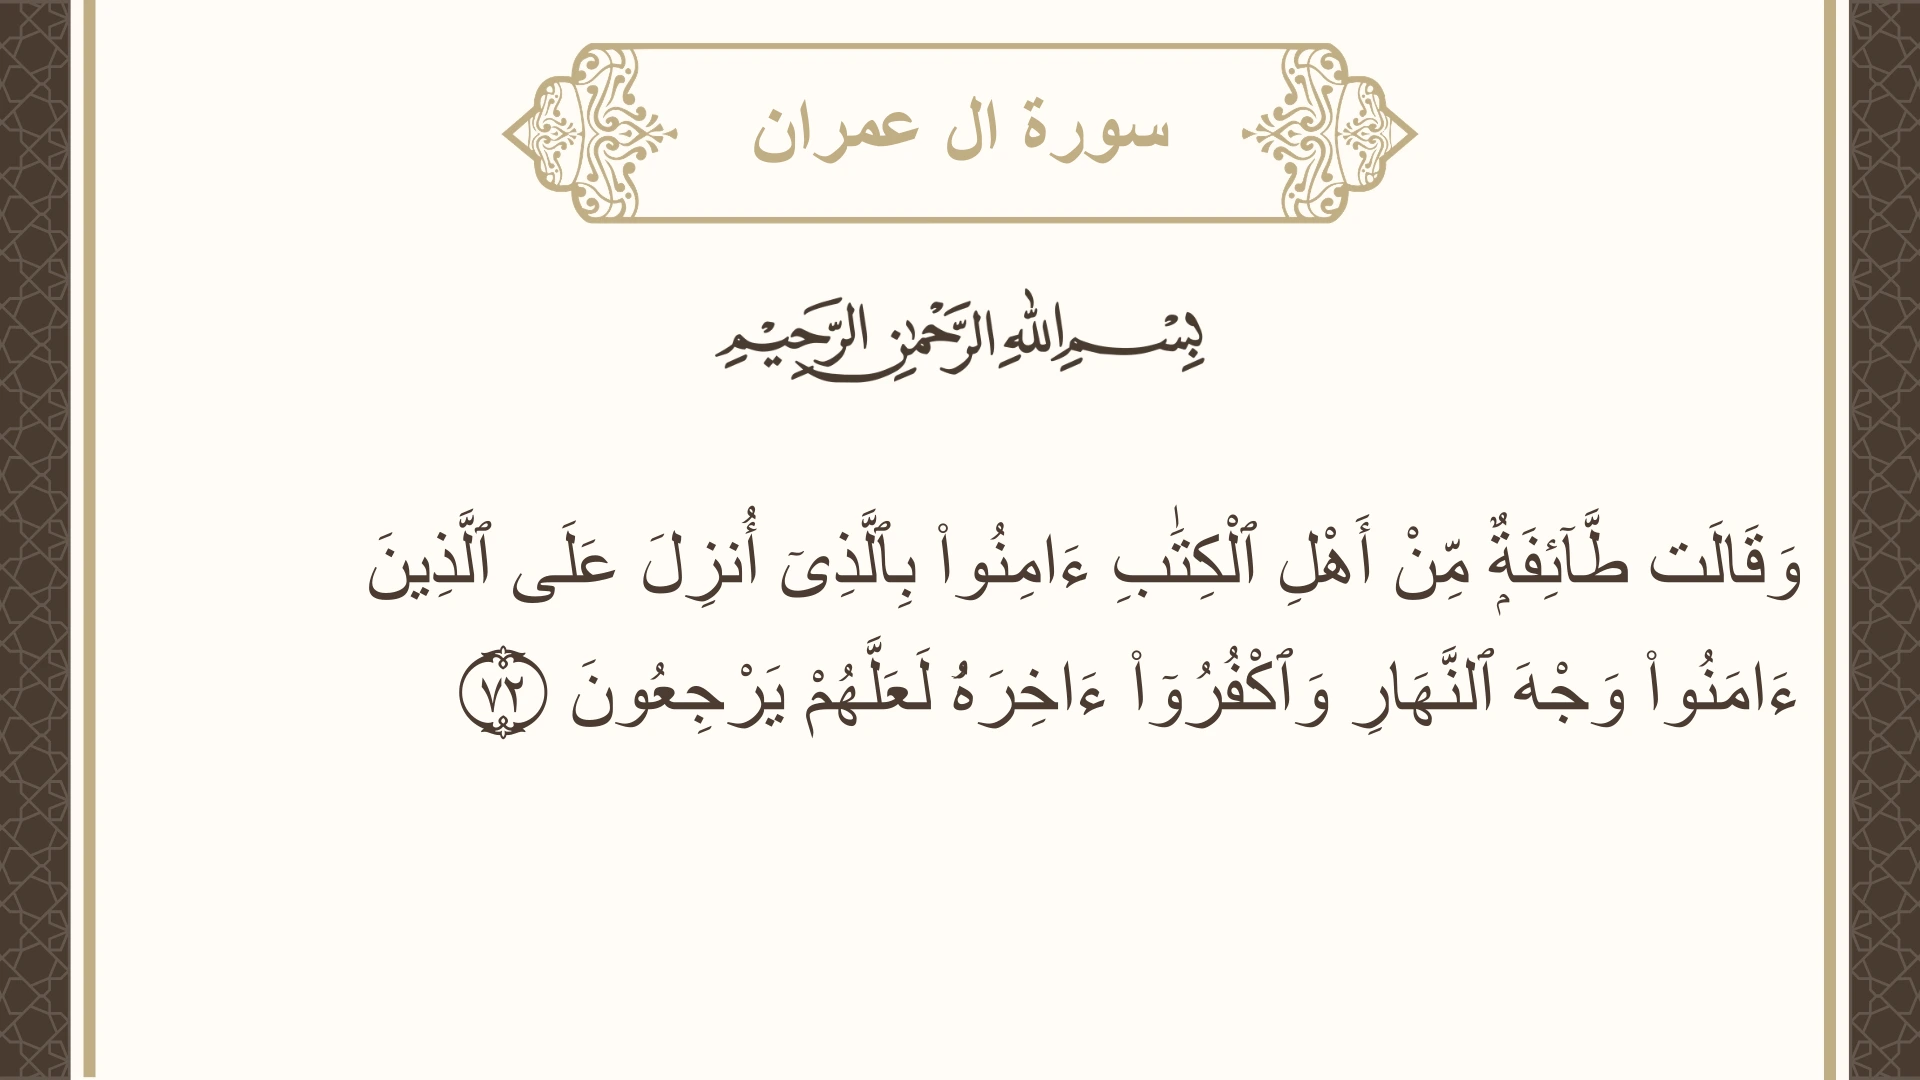 سورة ال عمران
بِسْمِ اللهِ الرَّحْمٰنِ الرَّحِيْمِ
وَقَالَت طَّآئِفَةٌۭ مِّنْ أَهْلِ ٱلْكِتَـٰبِ ءَامِنُوا۟ بِٱلَّذِىٓ أُنزِلَ عَلَى ٱلَّذِينَ
ءَامَنُوا۟ وَجْهَ ٱلنَّهَارِ وَٱكْفُرُوٓا۟ ءَاخِرَهُۥ لَعَلَّهُمْ يَرْجِعُونَ ٧٢